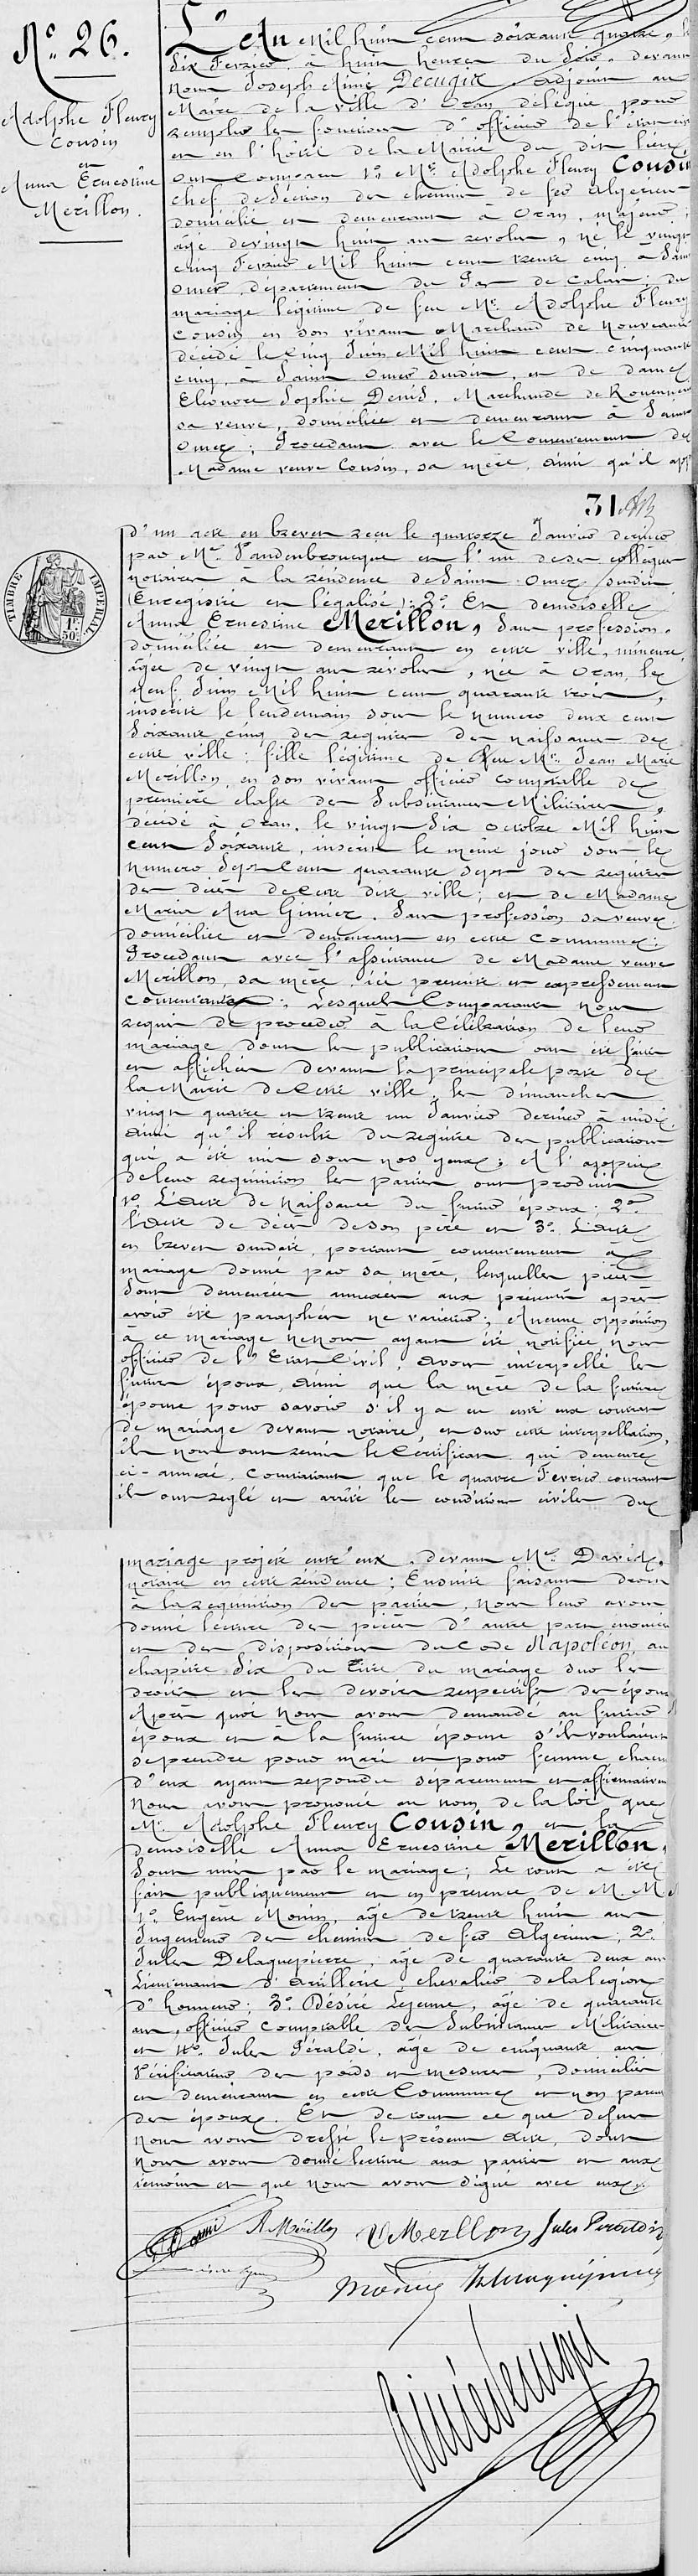 N.º 26.
Adolphe Fleury
Cousin
et
Anna Ernestine
Merillon.
L'An Mil huit cent soixante quatre, le
six Fevrier à huit heures du soir, devant
Nous Joseph Aimé Decugis, adjoint au
Maire de la ville d'Oran délégué pour
remplir les fonctions d'officier de l'état civil
et en l'hôtel de la Mairie du dit lieu
ont comparu 1º Mr. Adolphe Fleury Cousin
chef de Section des chemins de fer algériens
domicilié et demeurant à Oran, majeur,
âgé de vingt huit ans révolus, né le vingt
cinq Fevrier Mil huit cent trente cinq à Saint
Omer, département du Pas de Calais; du
mariage légitime de feu Mr. Adolphe Fleury
Cousin en son vivant Marchand de Nouveautés
décédé le cinq Juin Mil huit cent cinquante
cinq, à Saint Omer susdit, et de dame
Eléonore Sophie Denis, Marchande de Rouennerie
sa veuve, domiciliée et demeurant à Saint
Omer; Procédant avec le Consentement de
Madame veuve Cousin, sa mère, ainsi qu'il app
31
d'un acte en brevet reçu le quatorze Janvier dernier
par Mr. Vandenbroucque et l'un de ses collègues
notaires à la résidence de Saint Omer, susdit
(Enregistré et légalisé); 2º Et demoiselle
Anna Ernestine Merillon, sans profession,
domiciliée et demeurant en cette ville, mineure,
âgée de vingt ans révolus, née à Oran, le
neuf Juin Mil huit cent quarante trois,
inscrite le lendemain sous le numéro deux cent
soixante cinq des registres des naissances de
cette ville; fille légitime de feu Mr. Jean Marie
Merillon, en son vivant officier comptable de
première classe des Subsistances Militaires,
décédé à Oran, le vingt six octobre Mil huit
cent soixante, inscrit le même jour sous le
numéro sept cent quarante sept des registres
des décès de cette dite ville; et de Madame
Maria Ana Gimier, sans profession sa veuve,
domiciliée et demeurant en cette Commune;
Procédant avec l'assistance de Madame veuve
Merillon, sa mère, ici présente et expressément
consentante; Lesquels Comparants nous
requis de procéder à la Célébration de leur
mariage dont les publications ont été faites
et affichées devant la principale porte de
la Mairie de cette ville, les dimanches
vingt quatre et trente un Janvier dernier à midi,
ainsi qu'il résulte du registre des publications
qui a été mis sous nos yeux; A l'appui
de leur réquisition les parties ont produit
1º L'acte de Naissance du futur époux; 2º
l'acte de décès de son père et 3º L'acte
en brevet susdaté, portant consentement à
mariage donné par sa mère, lesquelles pièces
sont demeurées annexées aux présentes après
avoir été paraphées ne varietur; Aucune opposition
à ce mariage ne nous ayant été notifiée, Nous
officier de l'Etat Civil, avons interpellé les
futurs époux, ainsi que la mère de la future
épouse pour savoir s'il y a eu entre eux contrat
de mariage devant notaire, et sur cette interpellation,
ils nous ont remis le Certificat qui demeure
ci-annexé, constatant que le quatre Fevrier courant
ils ont réglé et arrêté les conditions civiles du
TIMBRE IMPERIAL
1F 50C
mariage projeté entr'eux, devant Me. David,
notaire en cette résidence; Ensuite faisant droit
à la réquisition des parties, Nous leur avons
donné lecture des pièces d'autre part énoncées
et des dispositions du Code Napoléon, au
chapitre six du titre du mariage sur les
droits et les devoirs respectifs des époux
Après quoi Nous avons demandé au futur
époux et à la future épouse s'ils voulaient
se prendre pour mari et pour femme chacun
d'eux ayant répondu séparément et affirmativement
Nous avons prononcé au nom de la loi que
Mr. Adolphe Fleury Cousin, et la
demoiselle Anna Ernestine Merillon,
sont unis par le mariage; Le tout a été
fait publiquement et en présence de M.M.
1º Eugène Monin, âgé de trente huit ans
Ingénieur des chemins de fer Algériens; 2º
Jules Delaquepierre, âgé de quarante deux ans
Lieutenant d'artillerie chevalier de la légion
d'honneur; 3º Désiré Lejeune, âgé de quarante
ans, officier comptable des Subsistances Militaires
et 4º Jules Péraldi, âgé de cinquante ans
Vérificateur des poids et mesures, domiciliés
et demeurant en cette Commune et non parents
des époux. Et de tout ce que dessus
Nous avons dressé le présent Acte, dont
Nous avons donné lecture aux parties et aux
témoins et que Nous avons signé avec eux.
A Mérillon Merillon Jules Peraldi
Monin